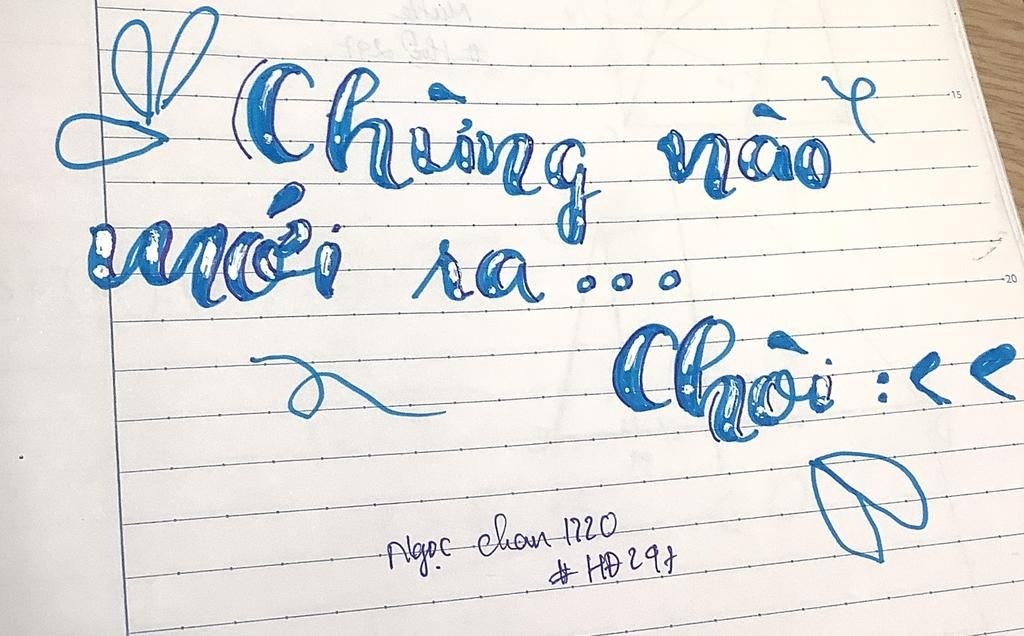 Chừng nào
mới ra...
Chời :<<
Ngọc chan 1220
#HĐ297
15
20